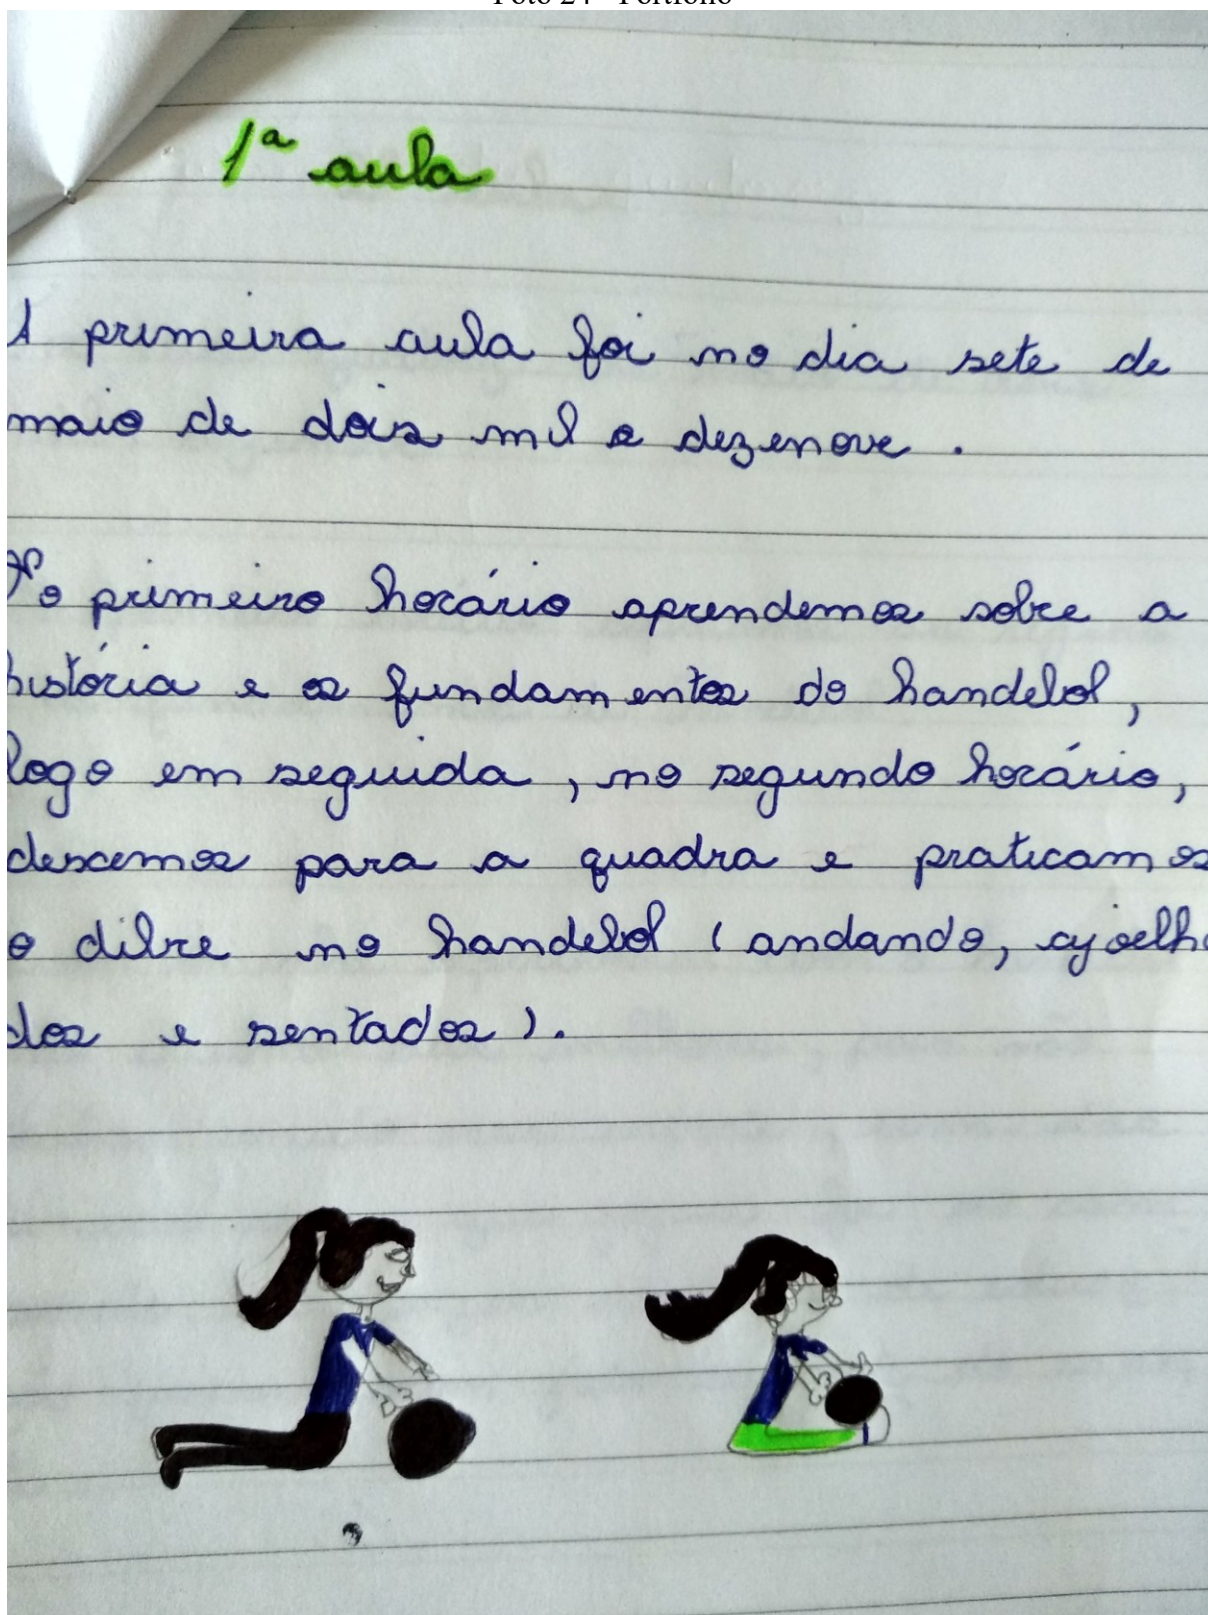 Foto 24 - Portfólio
1ª aula
A primeira aula foi no dia sete de
maio de dois mil e dezenove.
No primeiro horário aprendemos sobre a
história e os fundamentos do handebol,
logo em seguida, no segundo horário,
descemos para a quadra e praticamos
o dibre no handebol (andando, ajoelha
dos e sentados).